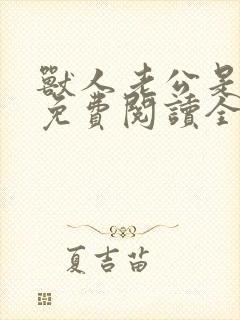 獸人老公是
免費閱讀全
夏吉苗